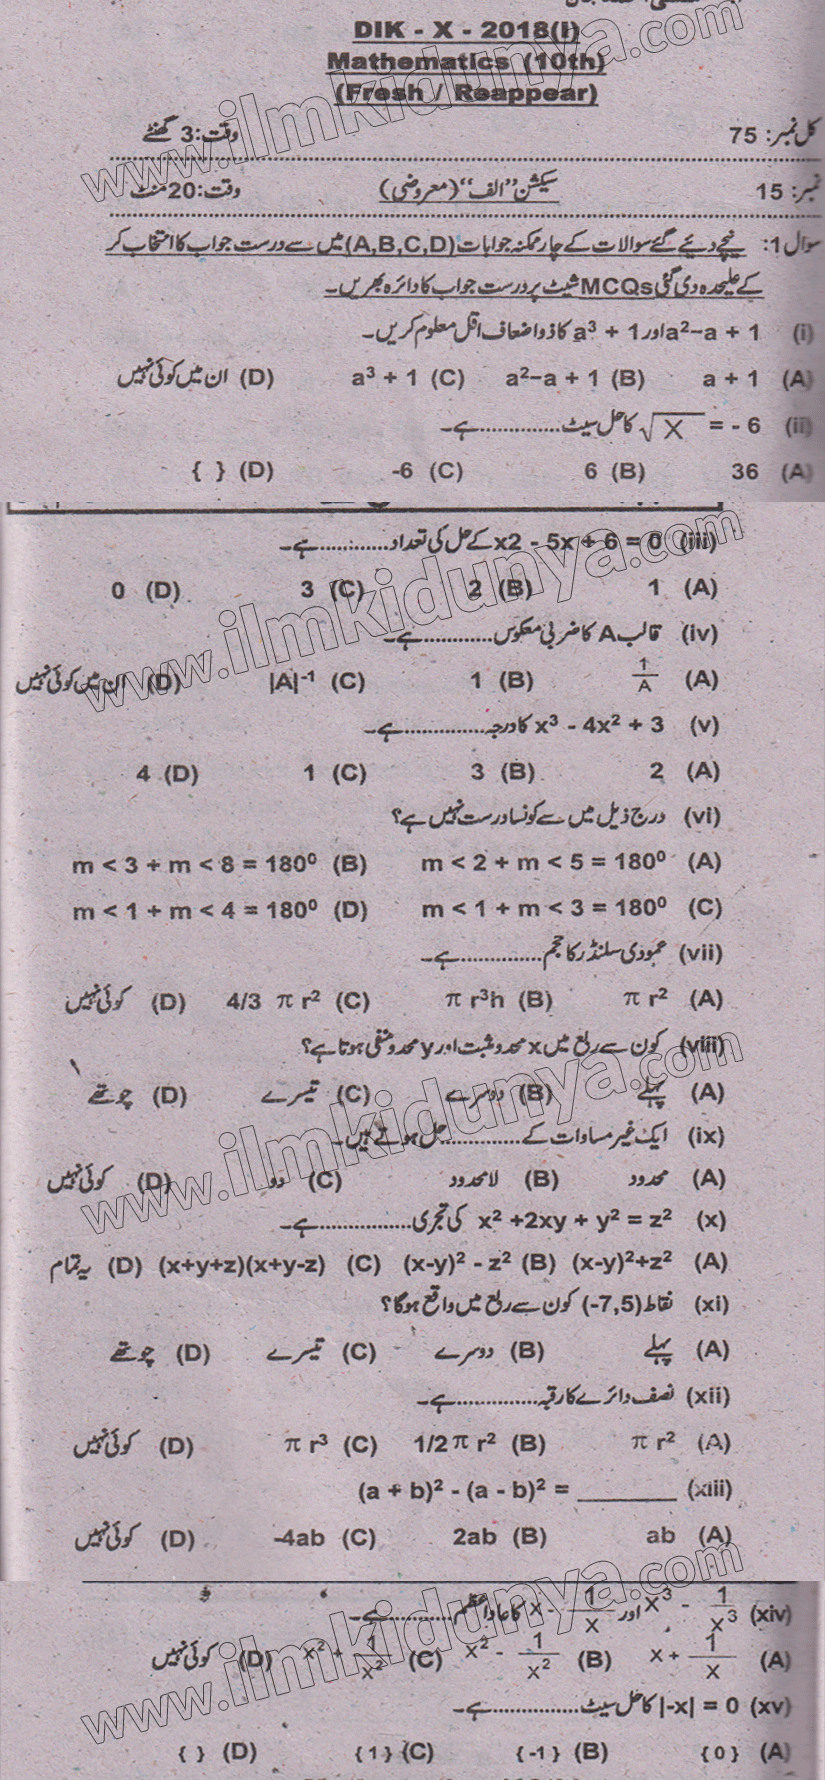 DIK - X - 2018(I)
Mathematics (10th)
(Fresh / Reappear)
کل نمبر: 75 وقت: 3 گھنٹے
نمبر: 15 سیکشن ”الف“ (معروضی) وقت: 20 منٹ
سوال 1: نیچے دیئے گئے سوالات کے چار ممکنہ جوابات (A,B,C,D) میں سے درست جواب کا انتخاب کر
کے علیحدہ دی گئی MCQs شیٹ پر درست جواب کا دائرہ بھریں۔
(i) a²-a + 1 اور a³ + 1 کا ذواضعاف اقل معلوم کریں۔
(A) a + 1 (B) a²-a + 1 (C) a³ + 1 (D) ان میں کوئی نہیں
(ii) √x = - 6 کا حل سیٹ..............ہے۔
(A) 36 (B) 6 (C) -6 (D) { }
(iii) x2 - 5x + 6 = 0 کے حل کی تعداد............ہے۔
(A) 1 (B) 2 (C) 3 (D) 0
(iv) قالب A کا ضربی معکوس............ہے۔
(A) 1/A (B) 1 (C) |A|⁻¹ (D) ان میں کوئی نہیں
(v) x³ - 4x² + 3 کا درجہ..............ہے۔
(A) 2 (B) 3 (C) 1 (D) 4
(vi) درج ذیل میں سے کونسا درست نہیں ہے؟
(A) m < 2 + m < 5 = 180⁰ (B) m < 3 + m < 8 = 180⁰
(C) m < 1 + m < 3 = 180⁰ (D) m < 1 + m < 4 = 180⁰
(vii) عمودی سلنڈر کا حجم..............ہے۔
(A) π r² (B) π r³h (C) 4/3 π r² (D) کوئی نہیں
(viii) کون سے ربع میں x محدد مثبت اور y محدد منفی ہوتا ہے؟
(A) پہلے (B) دوسرے (C) تیسرے (D) چوتھے
(ix) ایک غیر مساوات کے..............حل ہوتے ہیں۔
(A) محدود (B) لامحدود (C) دو (D) کوئی نہیں
(x) x² +2xy + y² = z² کی تجزی................ہے۔
(A) (x-y)²+z² (B) (x-y)² - z² (C) (x+y+z)(x+y-z) (D) یہ تمام
(xi) نقاط (-7,5) کون سے ربع میں واقع ہوگا؟
(A) پہلے (B) دوسرے (C) تیسرے (D) چوتھے
(xii) نصف دائرے کا رقبہ..............ہے۔
(A) π r² (B) 1/2 π r² (C) π r³ (D) کوئی نہیں
(xiii) (a + b)² - (a - b)² = ________
(A) ab (B) 2ab (C) -4ab (D) کوئی نہیں
(xiv) x³ - 1/x³ اور x - 1/x کا عاداعظم............ہے۔
(A) x + 1/x (B) x² - 1/x² (C) x² + 1/x² (D) کوئی نہیں
(xv) |-x| = 0 کا حل سیٹ................ہے۔
(A) { 0 } (B) { -1 } (C) { 1 } (D) { }
www.ilmkidunya.com
www.ilmkidunya.com
www.ilmkidunya.com
www.ilmkidunya.com